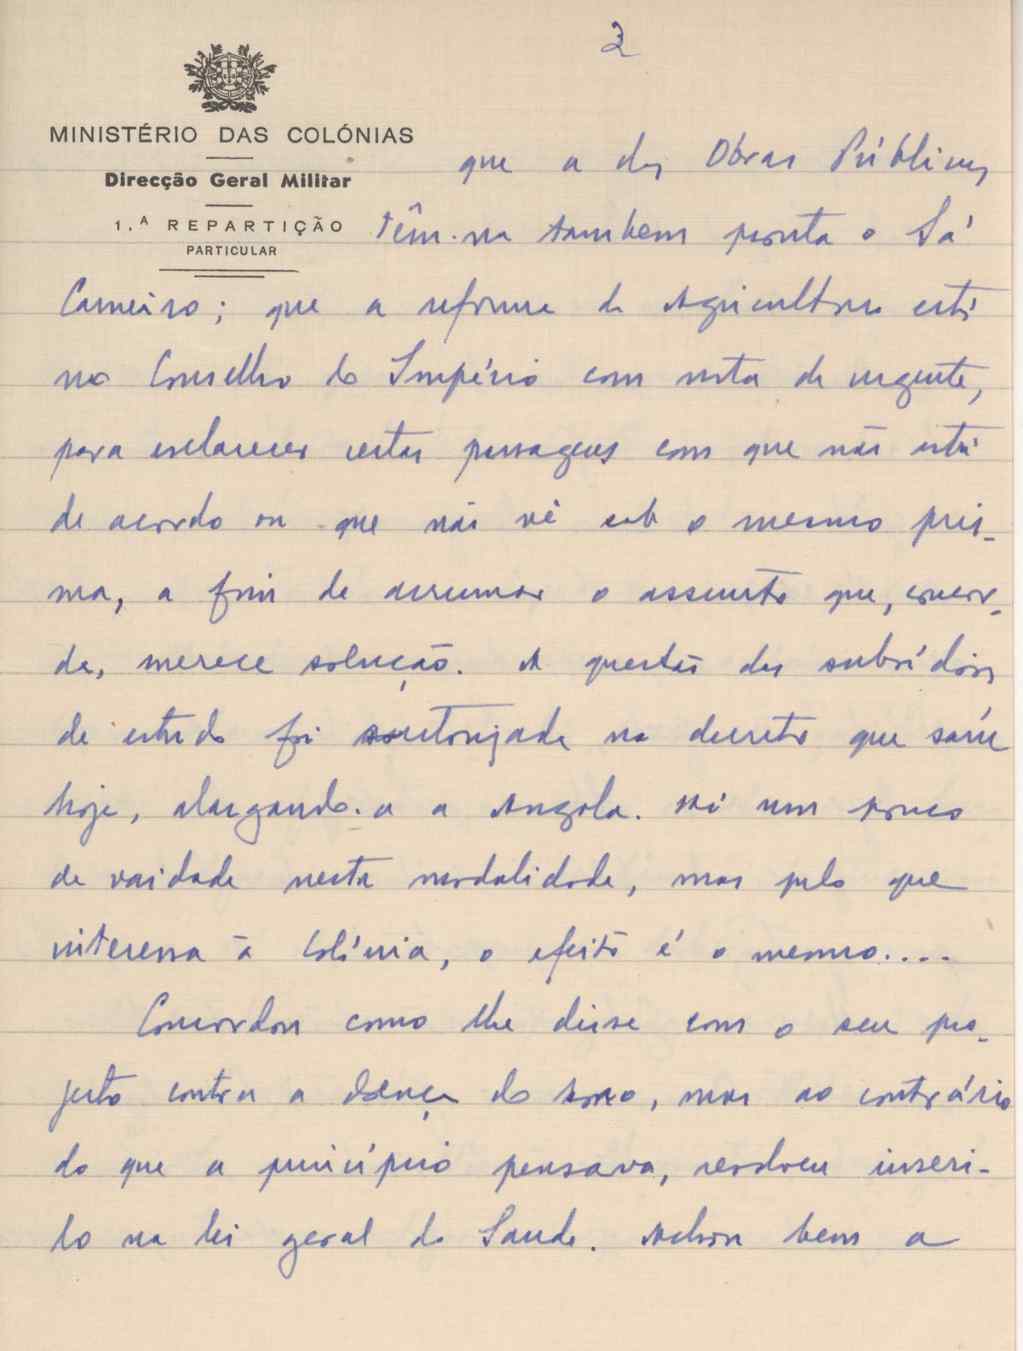 2
MINISTÉRIO DAS COLÓNIAS
Direcção Geral Militar
1.ª REPARTIÇÃO
PARTICULAR
que a das Obras Públicas
têm-na tambem pronta o Sá
Carneiro; que a reforma da Agricultura está
no Conselho do Império com nota de urgente,
para esclarecer certas passagens com que não está
de acordo ou que não vê sob o mesmo pris-
ma, a fim de arrumar o assunto que, concor-
da, merece solução. A questão dos subsídios
de estudo foi no decreto que saíu
hoje, alargando-a a Angola. Há um pouco
de vaidade nesta modalidade, mas pelo que
interessa à Colónia, o efeito é o mesmo....
Concordou como lhe disse com o seu pro-
jecto contra a doença do sono, mas ao contrário
do que a princípio pensava, resolveu inseri-
lo na lei geral de Saude. Achou bem a